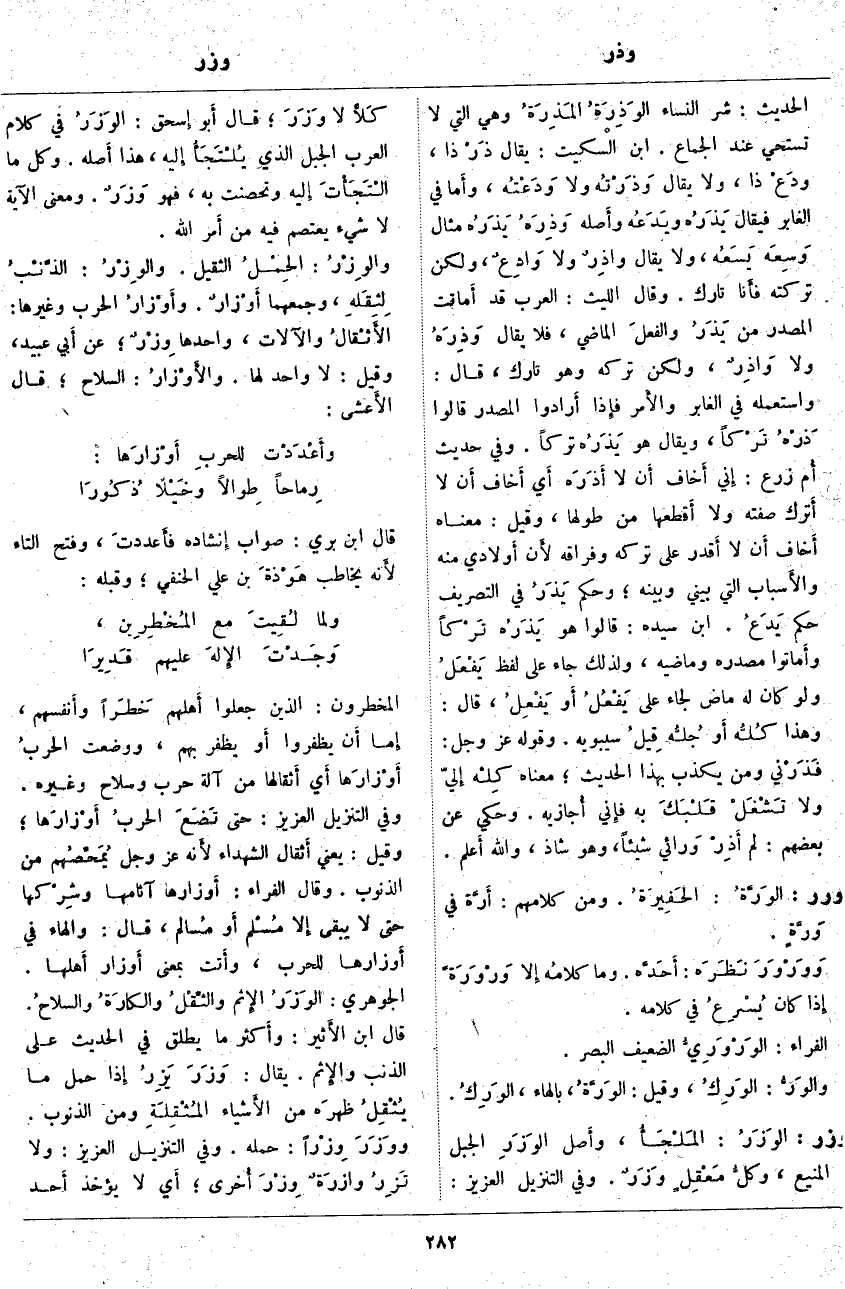 وذر
وزر
الحديث : شر النساء الوَذِرَةُ المَذِرَةُ وهي التي لا
تستحي عند الجماع . ابن السكيت : يقال ذَرْ ذا ،
ودَعْ ذا ، ولا يقال وَذَرْتُه ولا وَدَعْتُه ، وأما في
الغابر فيقال يَذَرُه ويَدَعُه وأصله وَذِرَهُ يَذَرُه مثال
وَسِعَه يَسَعُه ، ولا يقال واذِرٌ ولا وَادِعٌ ، ولكن
تركته فأنا تارك . وقال الليث : العرب قد أماتت
المصدر من يَذَرُ والفعلَ الماضي ، فلا يقال وَذِرَهُ
ولا وَاذِرٌ ، ولكن تركه وهو تارك ، قال :
واستعمله في الغابر والأمر فإذا أرادوا المصدر قالوا
ذَرْهُ تَرْكاً ، ويقال هو يَذَرُه تركاً . وفي حديث
أم زرع : إني أخاف أن لا أذَرَه أي أخاف أن لا
أترك صفته ولا أقطعها من طولها ، وقيل : معناه
أخاف أن لا أقدر على تركه وفراقه لأن أولادي منه
والأسباب التي بيني وبينه ؛ وحكم يَذَرُ في التصريف
حكم يَدَعُ . ابن سيده : قالوا هو يَذَرُه تَرْكاً
وأماتوا مصدره وماضيه ، ولذلك جاء على لفظ يَفْعَلُ
ولو كان له ماض لجاء على يَفْعُلُ أو يَفْعِلُ ، قال :
وهذا كُلُّه أو جُلُّه قِيلُ سيبويه . وقوله عز وجل :
فَذَرْني ومن يكذب بهذا الحديث ؛ معناه كِلْه إليّ
ولا تَشْغَلْ قَلْبَكَ به فإني أُجازيه . وحكي عن
بعضهم : لم أَذِرْ وَرائي شيئاً ، وهو شاذ ، والله أعلم .
ورر : الوَرَّةُ : الحَفِيرَةُ . ومن كلامهم : أرَّة في
وَرَّةٍ .
وَوَرْوَرَ نَظَرَه : أحَدَّه . وما كلامُه إلا وَرْوَرَةٌ
إذا كان يُسْرِعُ في كلامه .
الفراء : الوَرْوَرِيُّ الضعيف البصر .
والوَرُّ : الوَرِكُ ، وقيل : الوَرَّةُ ، بالهاء ، الوَرِكُ .
وزر : الوَزَرُ : المَلْجَأُ ، وأصل الوَزَرِ الجبل
المنيع ، وكلُّ مَعْقِلٍ وَزَرٌ . وفي التنزيل العزيز :
كَلَّا لا وَزَرَ ؛ قال أبو إسحق : الوَزَرُ في كلام
العرب الجبل الذي يُلْتَجَأُ إليه ، هذا أصله . وكل ما
الْتَجَأْتَ إليه وتحصنت به ، فهو وَزَرٌ . ومعنى الآية
لا شيء يعتصم فيه من أمر الله .
والوِزْرُ : الحِمْلُ الثقيل . والوِزْرُ : الذَّنْبُ
لِثِقَلِهِ ، وجمعهما أوْزارٌ . وأوْزارُ الحرب وغيرها :
الأثْقالُ والآلات ، واحدها وِزْرٌ ؛ عن أبي عبيد ،
وقيل : لا واحد لها . والأوْزارُ : السلاح ؛ قال
الأعشى :
وأعْدَدْت للحربِ أوْزارَها :
رِماحاً طِوالاً وخَيْلًا ذُكُورَا
قال ابن بري : صواب إنشاده فأعددتَ ، وفتح التاء
لأنه يخاطب هَوْذةَ بن علي الحنفي ؛ وقبله :
ولما لُقِيتَ مع المُخْطِرِين ،
وَجَدْتَ الإلهَ عليهم قَدِيرَا
المخطرون : الذين جعلوا أهلهم خَطَراً وأنفسهم ،
إما أن يظفروا أو يظفر بهم ، ووضعت الحربُ
أوْزارَها أي أثقالها من آلة حرب وسلاح وغيره .
وفي التنزيل العزيز : حتى تَضَعَ الحربُ أوْزارَها ؛
وقيل : يعني أثقال الشهداء لأنه عز وجل يُمَحِّصُهم من
الذنوب . وقال الفراء : أوزارها آثامها وشِرْكها
حتى لا يبقى إلا مُسْلِم أو مُسالم ، قال : والهاء في
أوزارها للحرب ، وأتت بمعنى أوزار أهلها .
الجوهري : الوَزَرُ الإثم والثِّقْلُ والكارَةُ والسلاحُ .
قال ابن الأثير : وأكثر ما يطلق في الحديث على
الذنب والإثم . يقال : وَزَرَ يَزِرُ إذا حمل ما
يُثْقِلُ ظهرَه من الأشياء المُثْقِلَةِ ومن الذنوب .
ووَزَرَ وِزْراً : حمله . وفي التنزيل العزيز : ولا
تَزِرُ وازرَةٌ وِزْرَ أُخرى ؛ أي لا يؤخذ أحد
٢٨٢